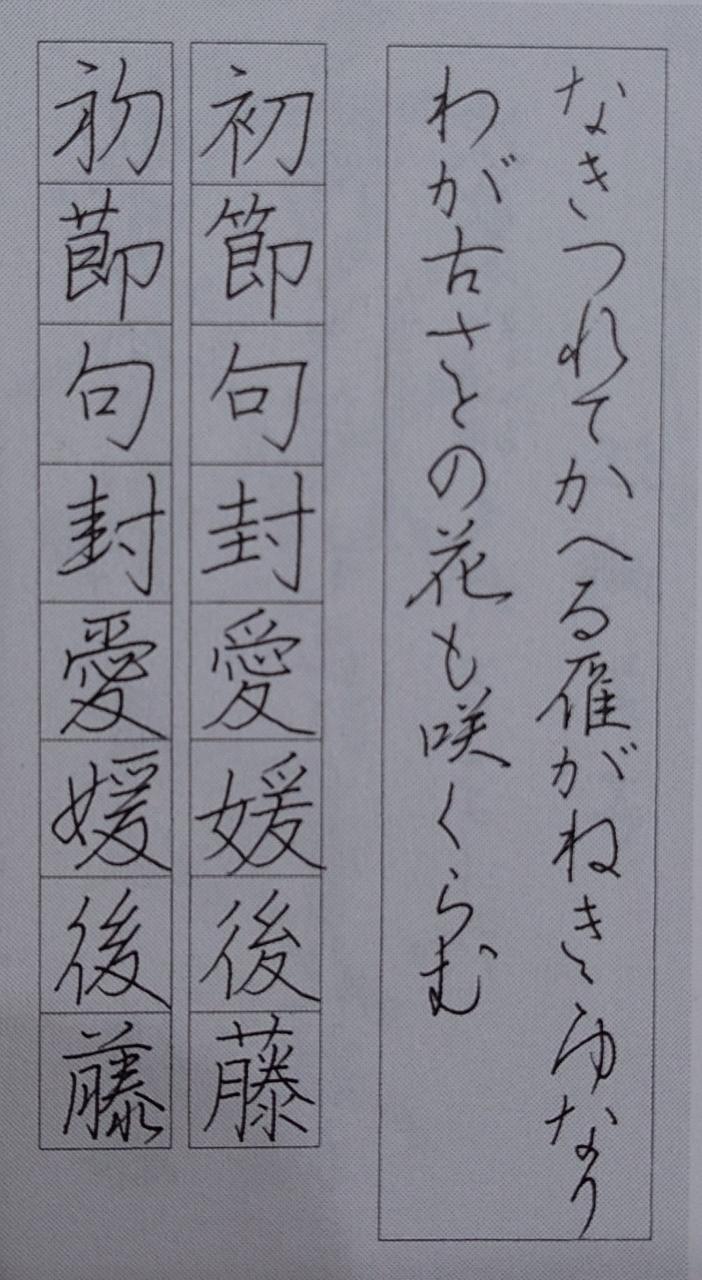 なきつれてかへる雁がねきこゆなり
わが古さとの花も咲くらむ
初節句封愛媛後藤
初節句封愛媛後藤